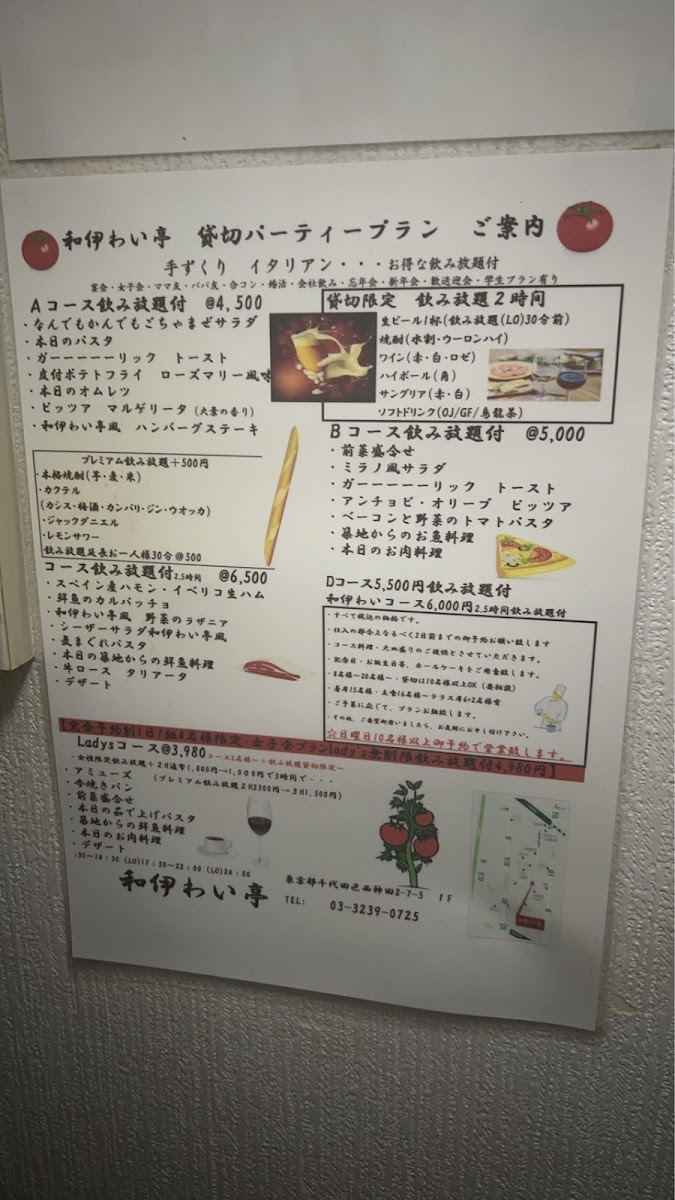 和伊わい亭 貸切パーティープラン ご案内
手ずくり イタリアン・・・お得な飲み放題付
宴会・女子会・ママ友・パパ友・合コン・婚活・会社飲み・忘年会・新年会・歓送迎会・学生プラン有り
Aコース飲み放題付 @4,500
・なんでもかんでもごちゃまぜサラダ
・本日のパスタ
・ガーーーーーリック トースト
・皮付ポテトフライ ローズマリー風味
・本日のオムレツ
・ピッツア マルゲリータ(大葉の香り)
・和伊わい亭風 ハンバーグステーキ
貸切限定 飲み放題2時間
生ビール1杯(飲み放題(LO)30分前)
焼酎(水割・ウーロンハイ)
ワイン(赤・白・ロゼ)
ハイボール(角)
サングリア(赤・白)
ソフトドリンク(OJ/GF/烏龍茶)
プレミアム飲み放題+500円
・本格焼酎(芋・麦・米)
・カクテル
(カシス・梅酒・カンパリ・ジン・ウオッカ)
・ジャックダニエル
・レモンサワー
飲み放題延長お一人様30分@500
Bコース飲み放題付 @5,000
・前菜盛合せ
・ミラノ風サラダ
・ガーーーーーリック トースト
・アンチョビ・オリーブ ピッツア
・ベーコンと野菜のトマトパスタ
・築地からのお魚料理
・本日のお肉料理
コース飲み放題付2.5時間 @6,500
・スペイン産ハモン・イベリコ生ハム
・鮮魚のカルパッチョ
・和伊わい亭風 野菜のラザニア
・シーザーサラダ和伊わい亭風
・気まぐれパスタ
・本日の築地からの鮮魚料理
・牛ロース タリアータ
・デザート
Dコース5,500円飲み放題付
和伊わいコース6,000円2.5時間飲み放題付
・すべて税込の価格です。
・仕入の都合上なるべく2日前までの御予約お願い致します
・コース料理・大皿盛りのご提供とさせていただきます。
・記念日・お誕生日等、ホールケーキをご用意致します。
・8名様～20名様～・貸切は10名様以上OK(要相談)
・着席15名様・立食16名様～テラス席6+2名様有
・ご予算に応じて、プランお組致します。
・その他、ご要望御座いましたら、お気軽にお申し付け下さい。
☆日曜日10名様以上御予約で営業致します。
【完全予約制1日1組4名様限定・女子会プランlady's無制限飲み放題付4,980円】
Ladysコース@3,980 コース2名様～+飲み放題貸切限定～
・女性限定飲み放題+2H通常1,800円→1,000円で3時間で・・・
(プレミアム飲み放題2H2300円→3H1,500円)
・アミューズ
・今焼きパン
・前菜盛合せ
・本日の茹で上げパスタ
・築地からの鮮魚料理
・本日のお肉料理
・デザート
:30～14:30 (LO)17:30～22:00 (LO)24:00
和伊わい亭
東京都千代田区西神田2-7-5 1F
TEL: 03-3239-0725